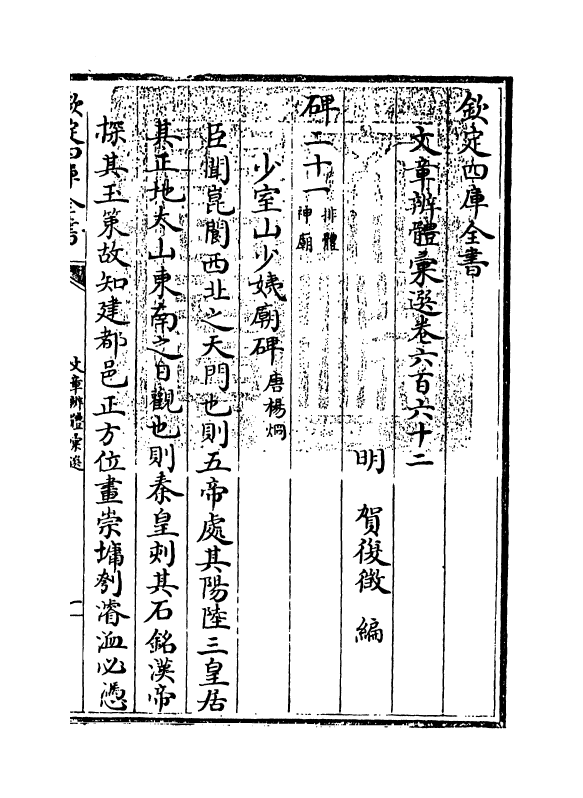 欽定四庫全書
文章辨體彚選卷六百六十二
明 賀復徵 編
碑二十一 排體 神廟
少室山少姨廟碑 唐楊烱
臣聞崑閬西北之天門也則五帝處其陽陸三皇居
其正地太山東南之日觀也則秦皇刺其石銘漢帝
探其玉策故知建都邑正方位畫崇墉刳濬洫必憑
欽定四庫全書
文章辨體彚選
一